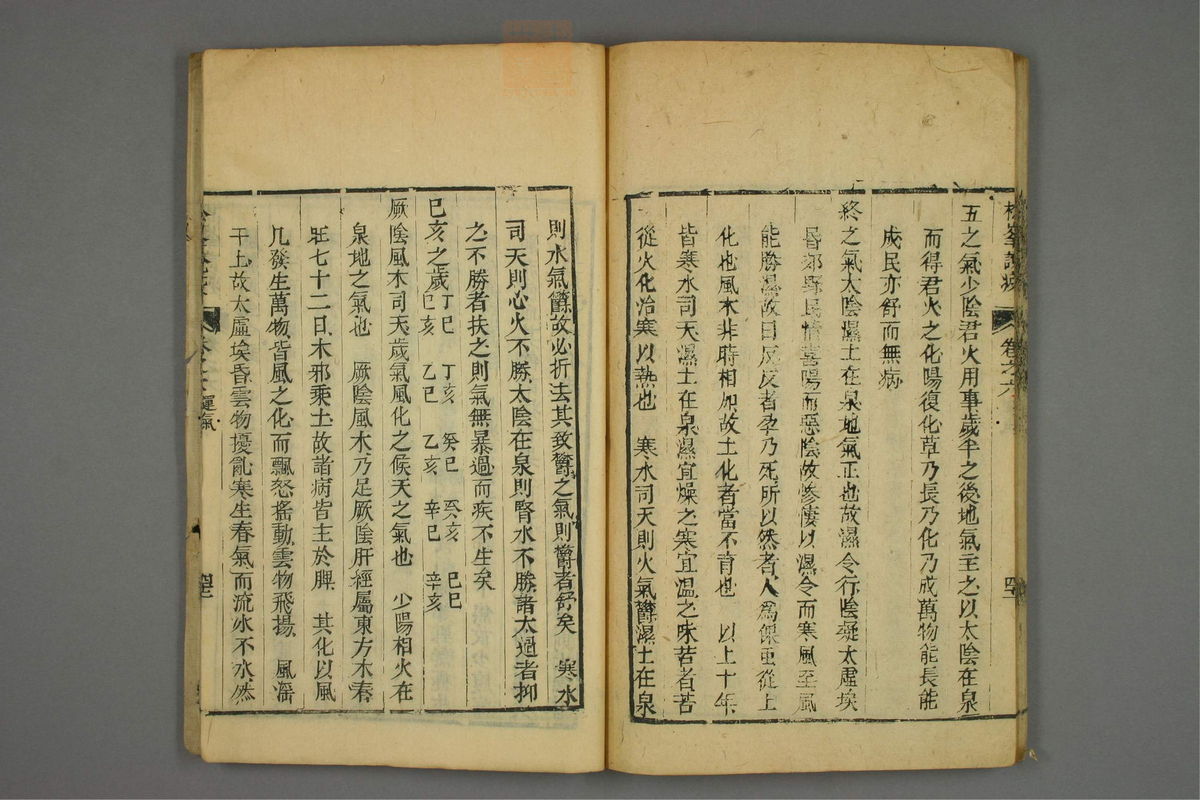 松峯說疫
卷之六
五之氣少陰君火用事歲半之後地氣主之以太陰在泉
而得君火之化陽復化草乃長乃化乃成萬物能長能
成民亦舒而無病
終之氣大陰濕土在泉地氣正也故濕令行陰凝太虛埃
昏郊野民情喜陽而惡陰故慘悽以濕令而寒風至風
能勝濕故曰反反者孕乃死所以然者人為倮虫從土
化也風木非時相加故土化者當不育也　以上十年
皆寒水司天濕土在泉濕宜燥之寒宜溫之味苦者苦
從火化治寒以熱也　寒水司天則火氣欝濕土在泉
則水氣欝故必折去其致欝之氣則欝者舒矣　寒水
司天則心火不勝太陰在泉則腎水不勝諸太過者抑
之不勝者扶之則氣無暴過而疾不生矣
巳亥之歲　丁巳　丁亥　癸巳　癸亥　己巳
己亥　乙巳　乙亥　辛巳　辛亥
厥陰風木司天歲氣風化之候天之氣也　少陽相火在
泉地之氣也　厥陰風木乃足厥陰肝經屬東方木春
旺七十二日木邪乘土故諸病皆主於脾　其化以風
凡發生萬物皆風之化而飄怒搖動雲物飛揚　風淫
干上故太虛埃昏雲物擾亂寒生春氣而流水不冰然
運氣